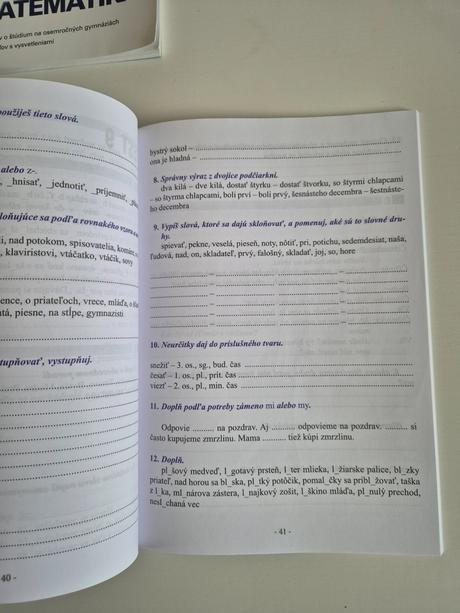 ATEMATIK
v o štúdium na osemročných gymnáziách
ľov s vysvetleniami
oužiješ tieto slová.
alebo z-.
_hnisať, _jednotiť, _príjemniť,
loňujúce sa podľa rovnakého vzoru
i, nad potokom, spisovatelia,
, klaviristovi, vtáčatko, vtáčik, sovy
ence, o priateľoch, vrece, mláďa, o
tá, piesne, na stĺpe, gymnazisti
tupňovať, vystupňuj.
40 -
bystrý sokol –
ona je hladná –
8. Správny výraz z dvojice podčiarkni.
dva kilá – dve kilá, dostať štyrku – dostať štvorku, so štyrmi chlapcami
– so štyrma chlapcami, boli prví – boli prvý, šesnásteho decembra – šestnáste-
ho decembra
9. Vypíš slová, ktoré sa dajú skloňovať, a pomenuj, aké sú to slovné dru-
hy.
spievať, pekne, veselá, pieseň, noty, nôtiť, pri, potichu, sedemdesiat, naša,
ľudová, nad, on, skladateľ, prvý, falošný, skladať, joj, so, hore
10. Neurčitky daj do príslušného tvaru.
snežiť – 3. os., sg., bud. čas
česať – 1. os., pl., prít. čas
viezť – 2. os., pl., min. čas
11. Doplň podľa potreby zámeno mi alebo my.
Odpovie .......... na pozdrav. Aj .......... odpovieme na pozdrav. .......... si
často kupujeme zmrzlinu. Mama .......... tiež kúpi zmrzlinu.
12. Doplň.
pl_šový medveď, l_gotavý prsteň, l_ter mlieka, l_žiarske palice, bl_zky
priateľ, nad horou sa bl_ska, pl_tký potôčik, pomal_čky sa pribl_žovať, taška
z l_ka, ml_nárova zástera, l_najkový zošit, l_škino mláďa, pl_nulý prechod,
nesl_chaná vec
- 41 -